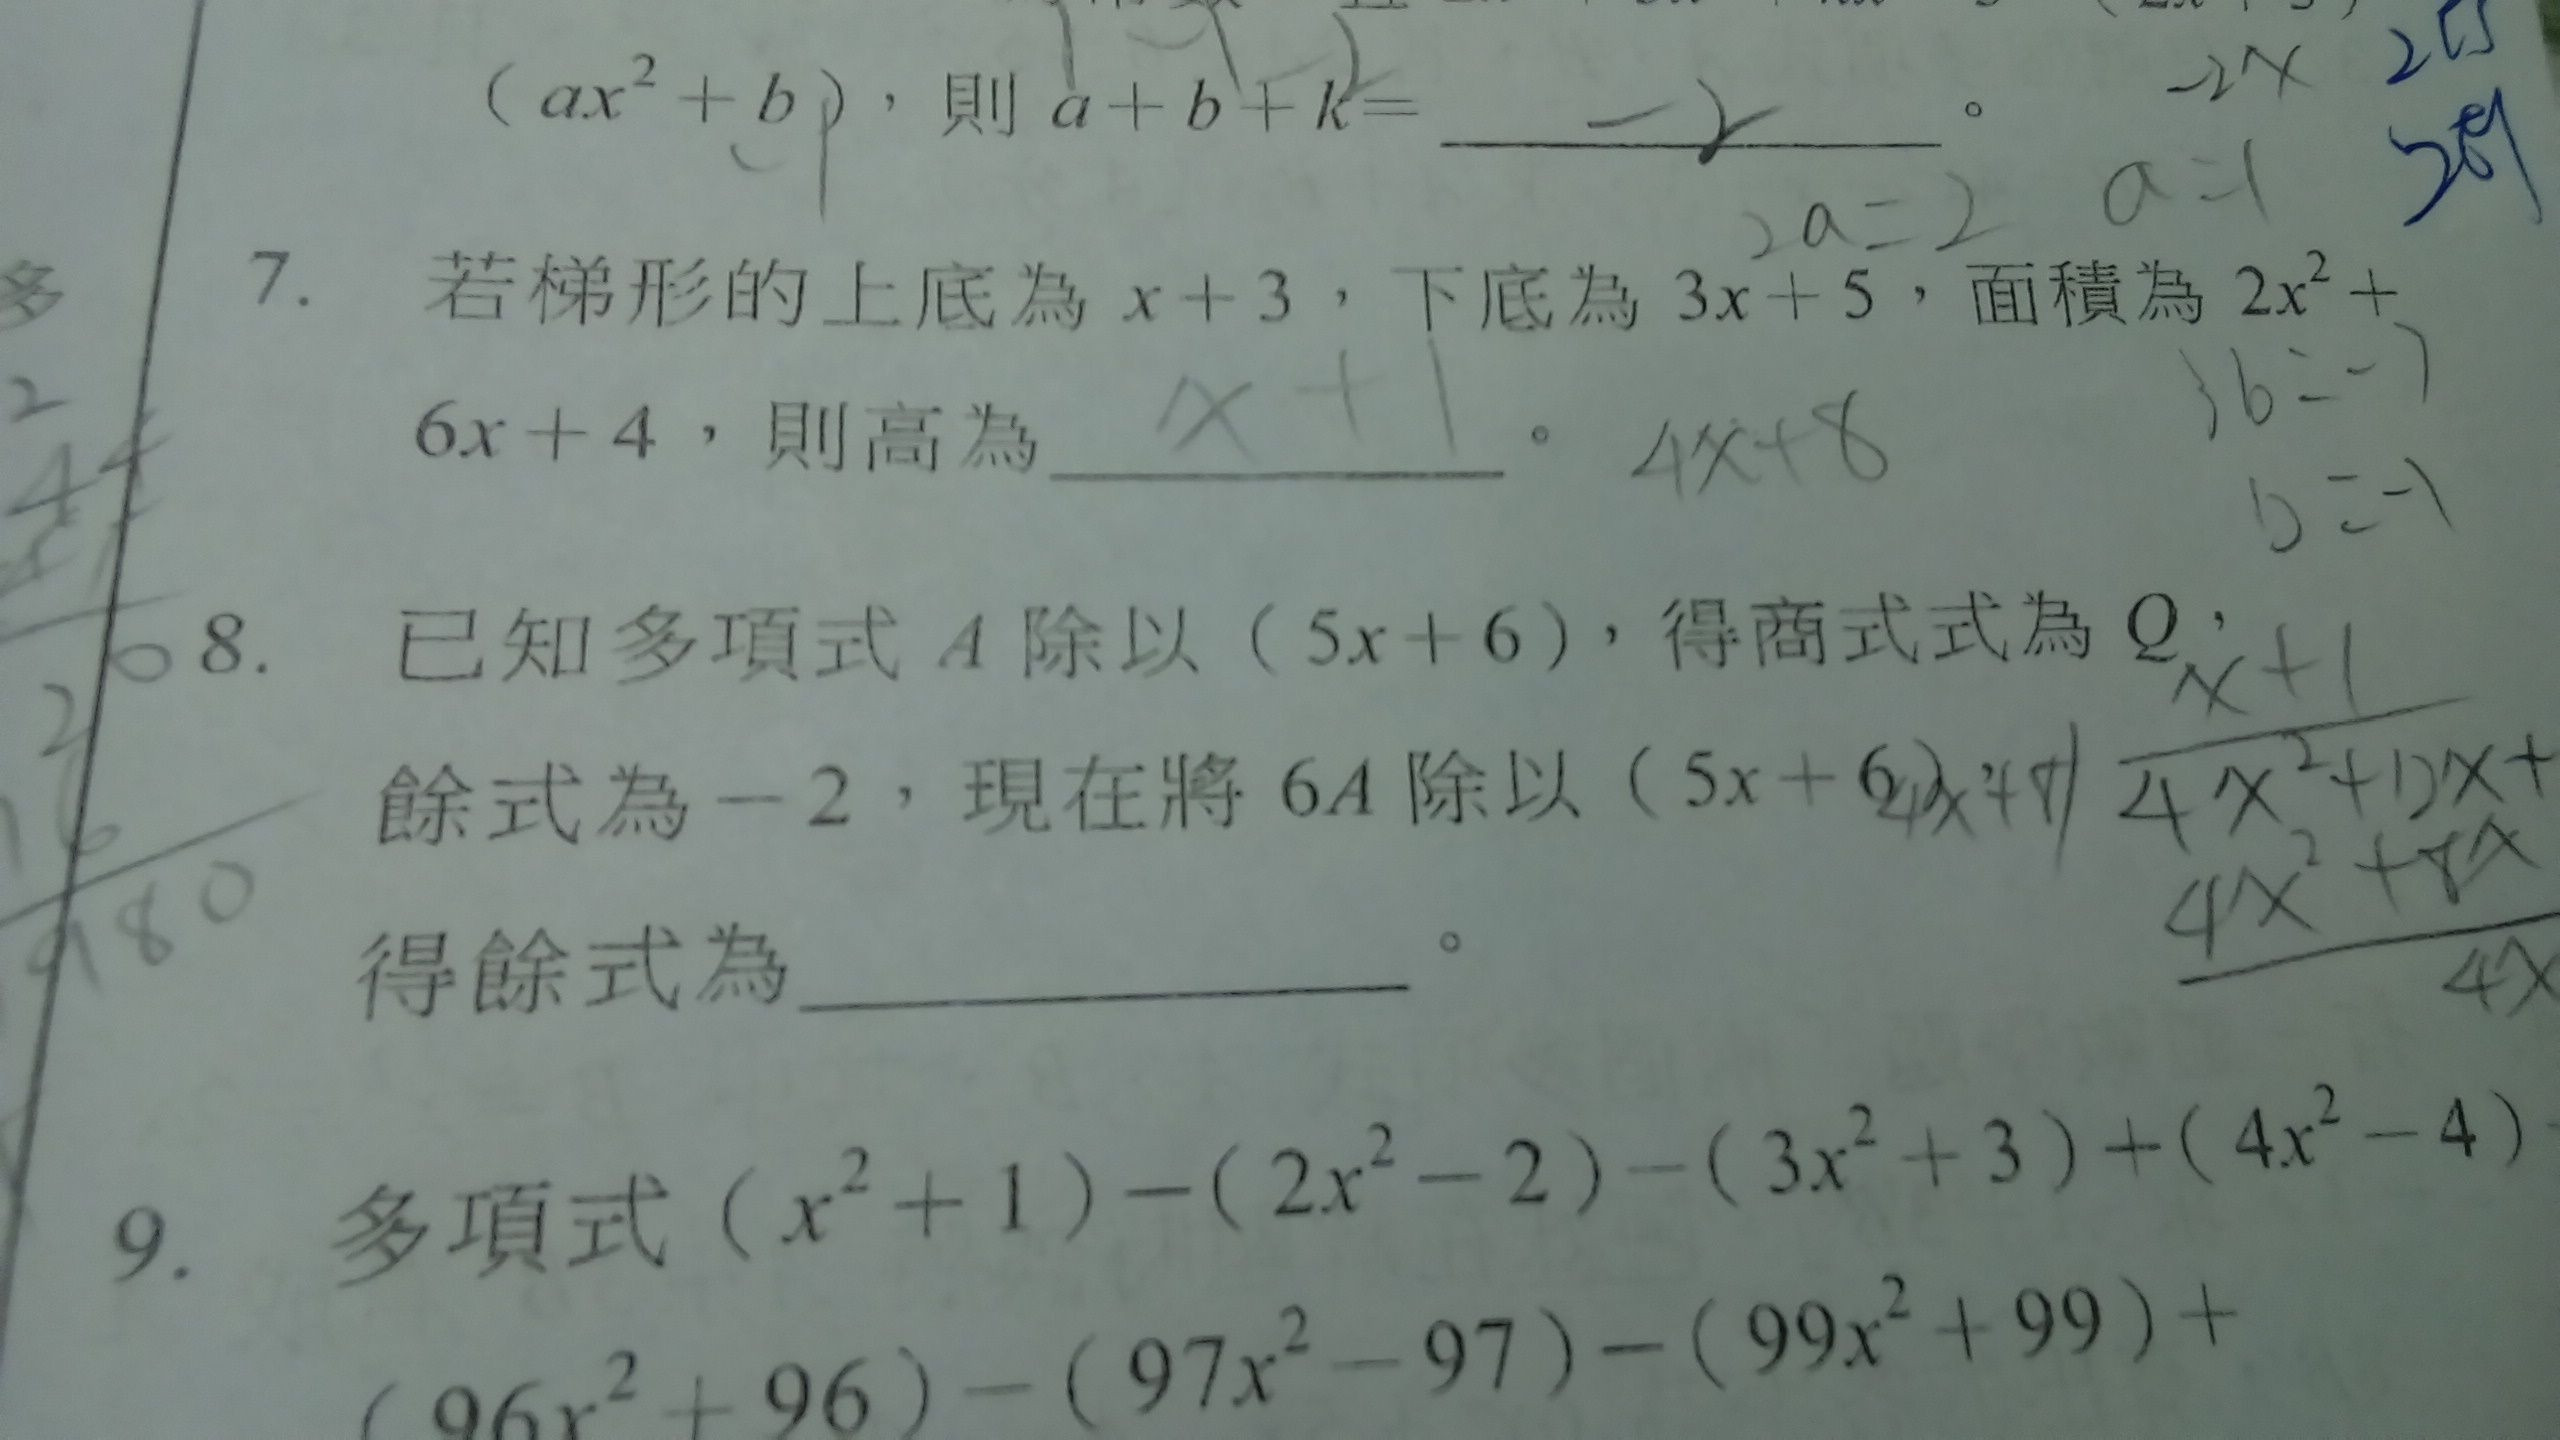 (ax² + b), 則 a + b + k = -2 。
-2x
2a = 2 a = 1
7. 若梯形的上底為 x + 3,下底為 3x + 5,面積為 2x² +
3b = -3
6x + 4,則高為 x + 1 。 4x + 8
b = -1
8. 已知多項式 A 除以(5x + 6),得商式式為 Q,
x + 1
餘式為 -2,現在將 6A 除以(5x + 6)
4x + 8 4x² + 12x +
4x² + 8x
得餘式為 。
4x
980
9. 多項式(x² + 1)-(2x² - 2)-(3x² + 3)+(4x² - 4)
(96x² + 96)-(97x² - 97)-(99x² + 99)+